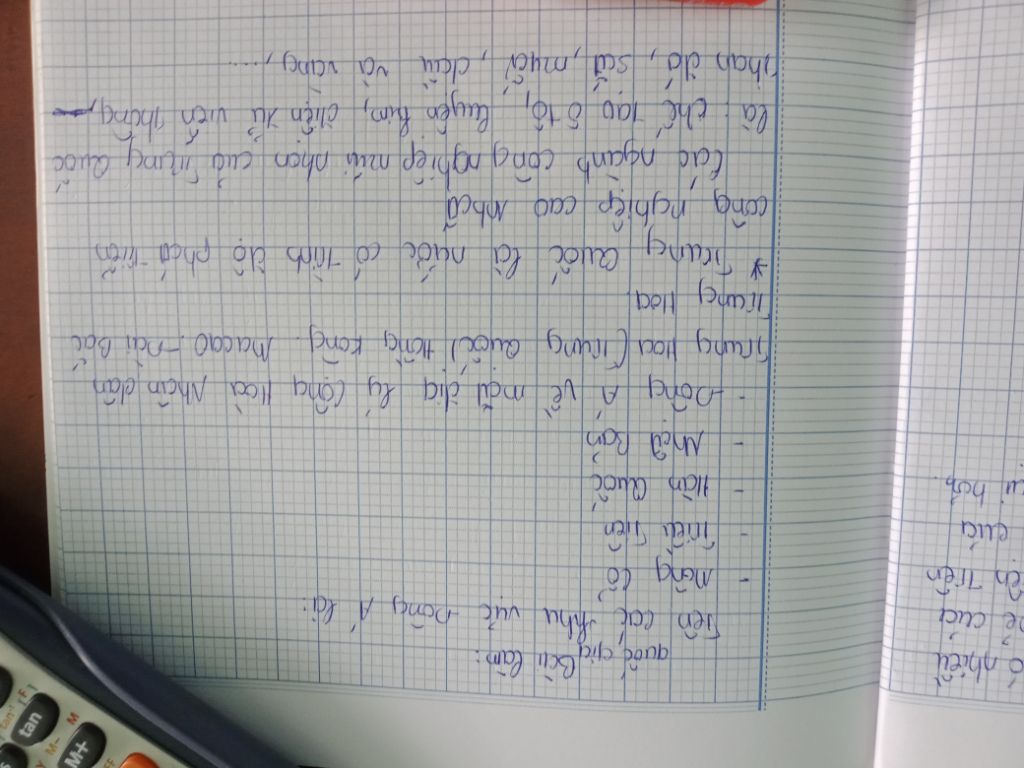 Bài làm:
quốc gia
Tên các khu vực Đông Á là:
- Mông Cổ
- Triều Tiên
- Hàn Quốc
- Nhật Bản
- Đông Á về mặt địa lý Cộng Hoà Nhân dân
Trung Hoa (Trung Quốc) Hồng Kông. Macao - Đài Bắc
Trung Hoa
* Trung Quốc là nước có trình độ phát triển
công nghiệp cao nhất
Các ngành công nghiệp mũi nhọn của Trung Quốc
là: chế tạo ô tô, luyện kim, điện tử viễn thông,
than đá, sắt, muối, dầu và vàng,.....
nhiều
của
triển
của
hợp.
tan
tan⁻¹
M+
M-
M